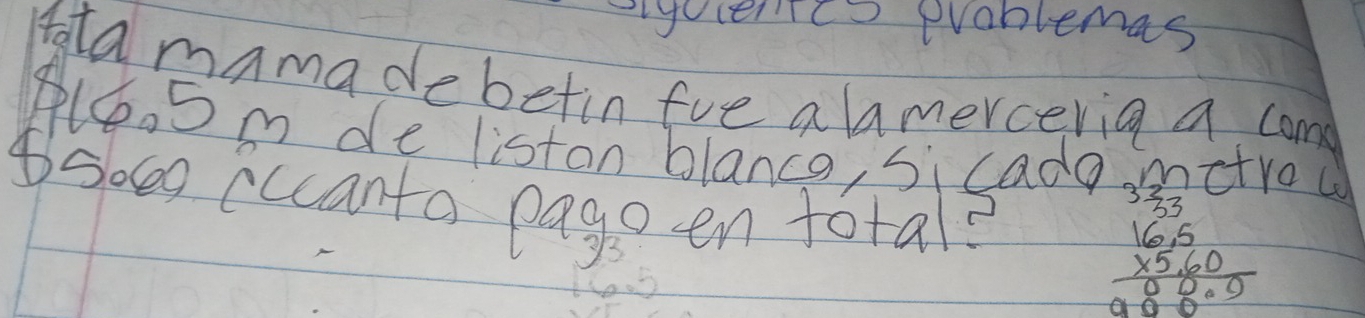 siguientes problemas
la mama de betin fue a la merceria a comp
$16.5 m de liston blanco, si cada metro c
$5.60 ¿Cuanto pago en total?
333
16.5
x5.60
00.0
900
33
16.5